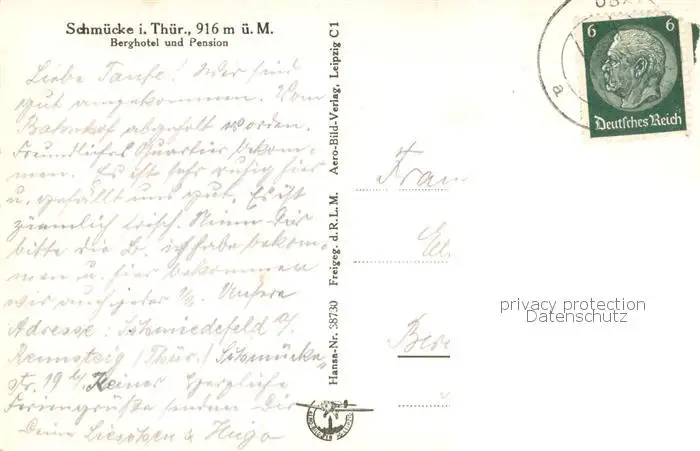 Schmücke i. Thür., 916 m ü. M.
Berghotel und Pension
Liebe Tante! Wir sind
gut angekommen. Vom
Bahnhof abgeholt worden.
Freundliches Quartier bekom-
men. Es ist sehr ruhig hier
u. gefällt uns gut. Es ist
ziemlich frisch. Nimm Dir
bitte die B. ich habe bekom-
men u. hier bekommen
wir auch jeder ½. Unsere
Adresse: Schmiedefeld a/.
Rennsteig (Thür.) Schmücke-
str. 19 b/ Keiner Herzliche
Feriengrüße senden Dir
Deine Lieschen & Hugo
Hansa-Nr. 38730 Freigeg. d. R.L.M. Aero-Bild-Verlag, Leipzig C 1
6 6
Deutsches Reich
a
Frau
privacy protection
Datenschutz